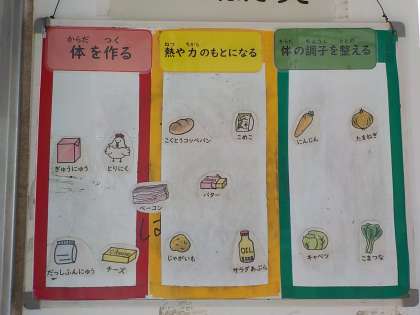 からだ つく
体を作る
ねつ ちから
熱や力のもとになる
からだ ちょうし ととの
体の調子を整える
ぎゅうにゅう
とりにく
こくとうコッペパン
こめこ
にんじん
たまねぎ
ベーコン
バター
だっしふんにゅう
チーズ
じゃがいも
OIL
サラダあぶら
キャベツ
こまつな